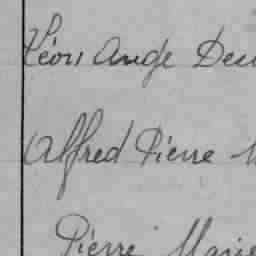 Léon Ange
Alfred Pierre
Pierre Marie